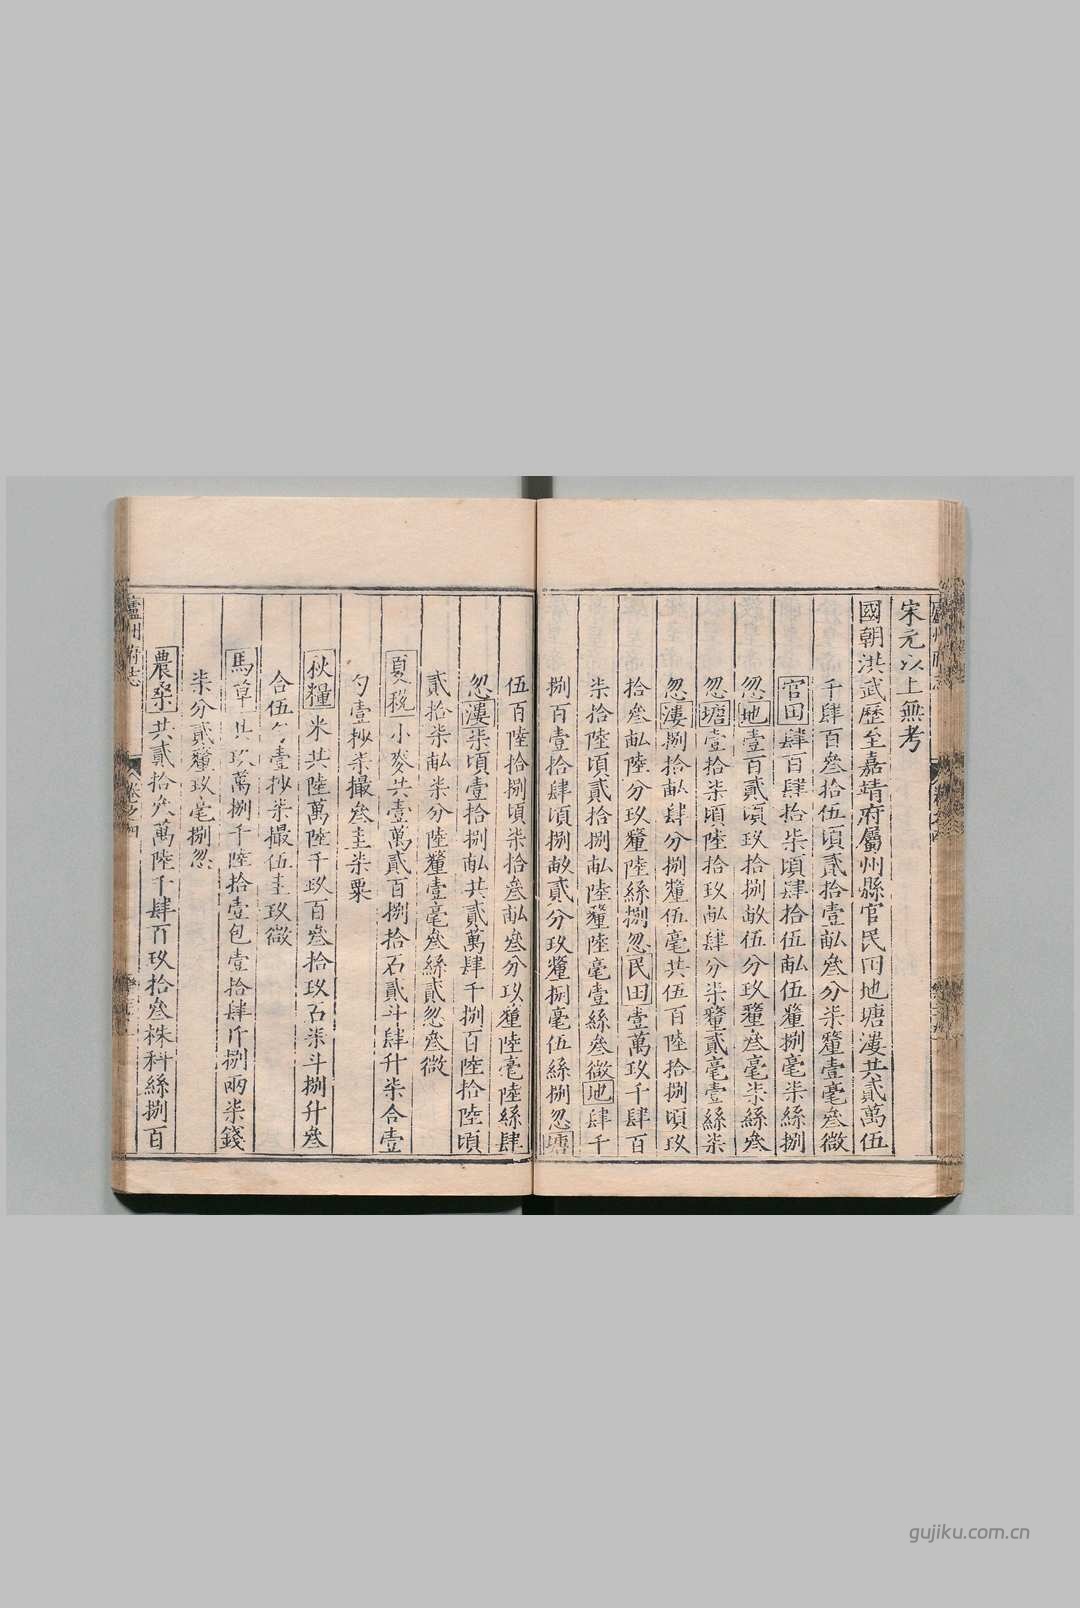 宋元以上無考
國朝洪武歷至嘉靖府屬州縣官民田地塘漊共貳萬伍
千肆百叁拾伍頃貳拾壹畝叁分柒釐壹毫叁微
官田肆百肆拾柒頃肆拾伍畝伍釐捌毫柒絲捌
忽地壹百貳頃玖拾捌畝伍分玖釐叁毫柒絲叁
忽塘壹拾柒頃陸拾玖畝肆分柒釐貳毫壹絲柒
忽漊捌拾畝肆分捌釐伍毫共伍百陸拾捌頃玖
拾叁畝陸分玖釐陸絲捌忽民田壹萬玖千肆百
柒拾陸頃貳拾捌畝陸釐陸毫壹絲叁微地肆千
捌百壹拾肆頃捌畝貳分玖釐捌毫伍絲捌忽塘
伍百陸拾捌頃柒拾叁畝叁分玖釐陸毫陸絲肆
忽漊柒頃壹拾捌畝共貳萬肆千捌百陸拾陸頃
貳拾柒畝柒分陸釐壹毫叁絲貳忽叁微
夏稅小麥共壹萬貳百捌拾石貳斗肆升柒合壹
勺壹抄柒撮叁圭柒粟
秋糧米共陸萬陸千玖百叁拾玖石柒斗捌升叁
合伍勺壹抄柒撮伍圭玖微
馬草共玖萬捌千陸拾壹包壹拾肆斤捌兩柒錢
柒分貳釐玖毫捌忽
農桑共貳拾萬陸千肆百玖拾叁株科絲捌百
廬州府志
卷之四
gujiku.com.cn